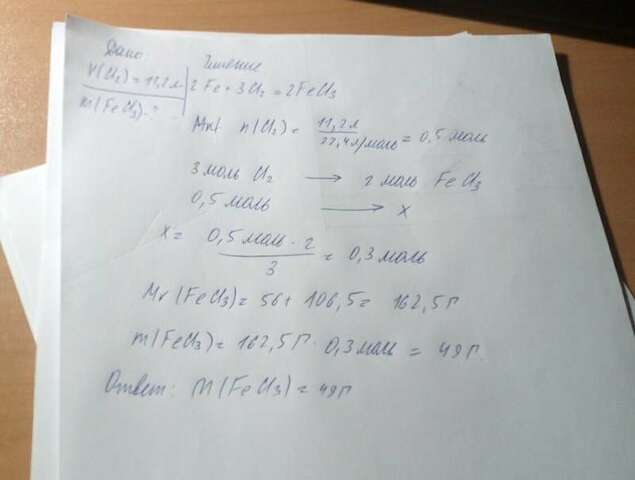 Дано:
Решение
V(Cl₂) = 11,2 л
2 Fe + 3Cl₂ = 2FeCl₃
m(FeCl₃) - ?
n(Cl₂) = 11,2 л / 22,4 л/моль = 0,5 моль
3 моль Cl₂ → 2 моль FeCl₃
0,5 моль → x
x = 0,5 моль · 2 / 3 = 0,3 моль
Mr (FeCl₃) = 56 + 106,5 = 162,5 г
m(FeCl₃) = 162,5 г · 0,3 моль = 49 г
Ответ: M (FeCl₃) = 49 г